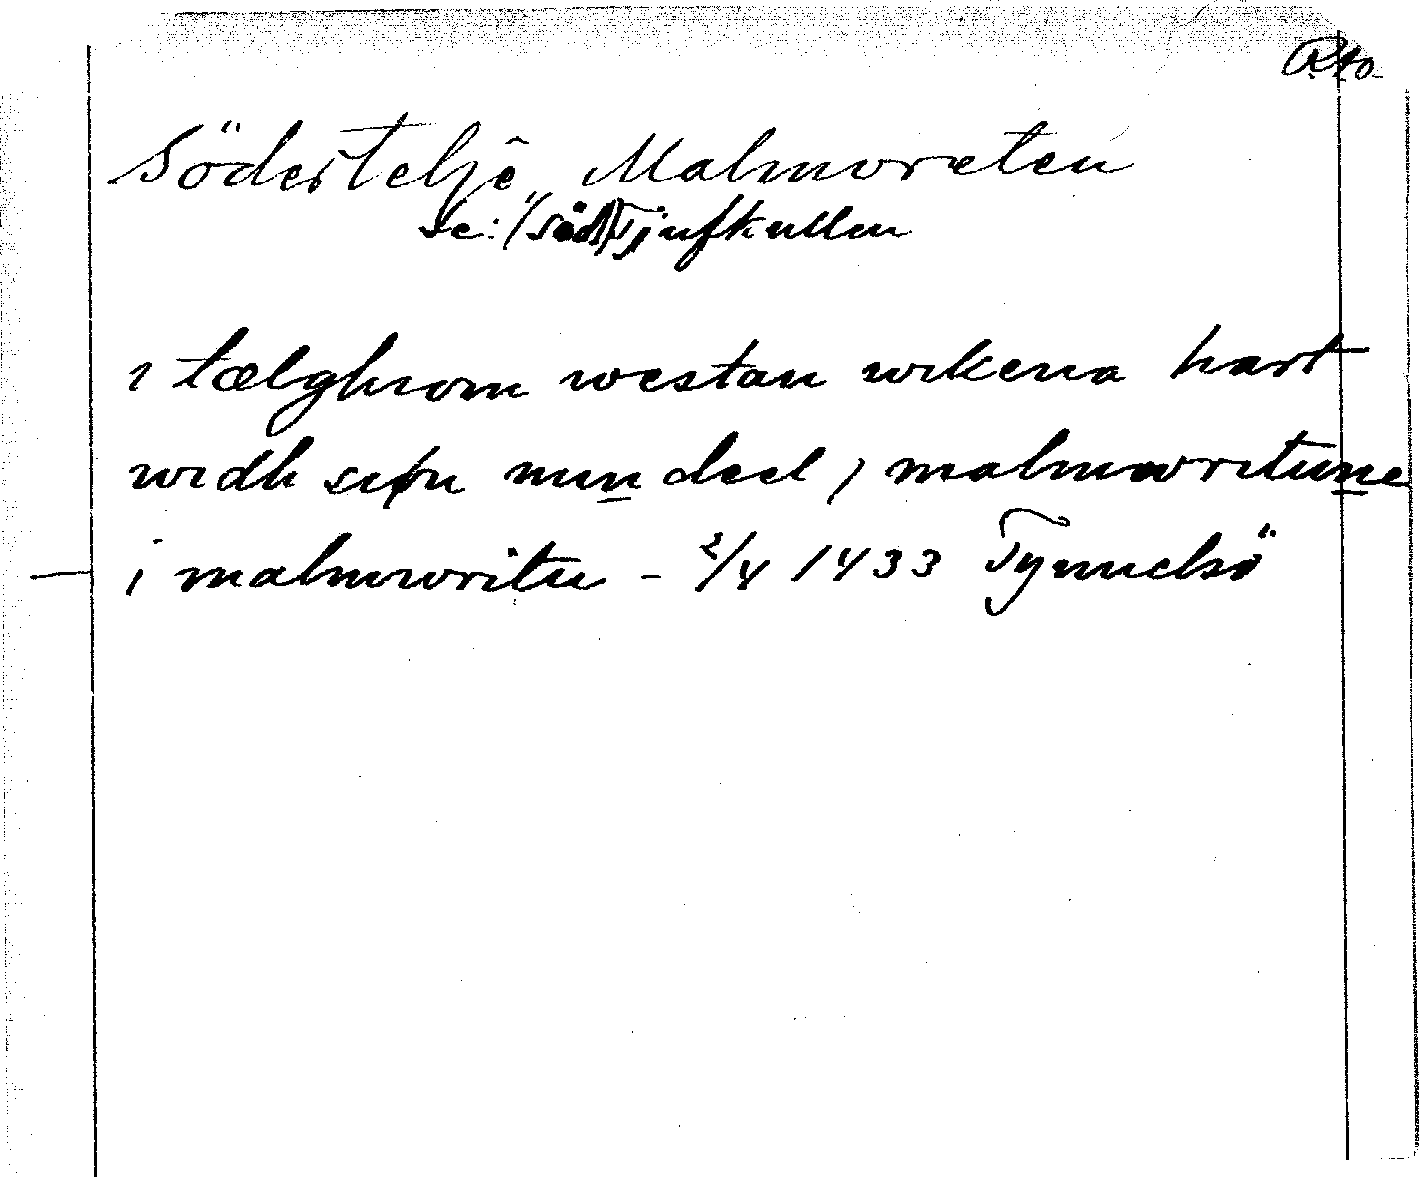 RAo.
Södertelje, Malmvreten
se: (Söd) Tjufkullen
i tælghiom westan wikena hart
widh siøn min deel i malmwritinne
i malmwritu - 2/4 1433 Tynnelsö